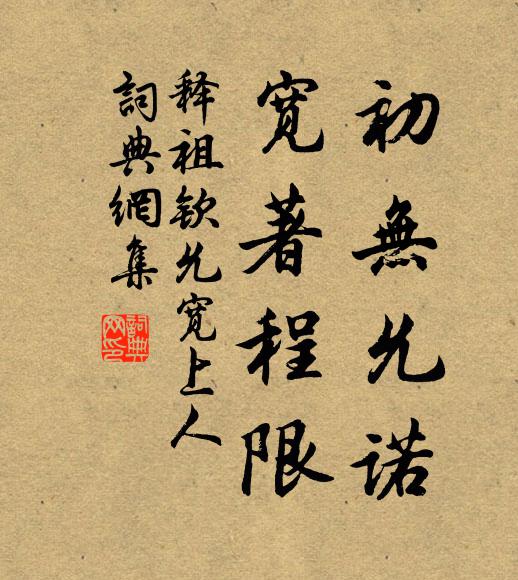 初無允諾
寬著程限
释祖欽允寬上人
詞典網集
詞典网印